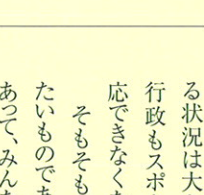 る状況は大
行政もスポ
応できなく
そもそも
たいもので
あって、みん